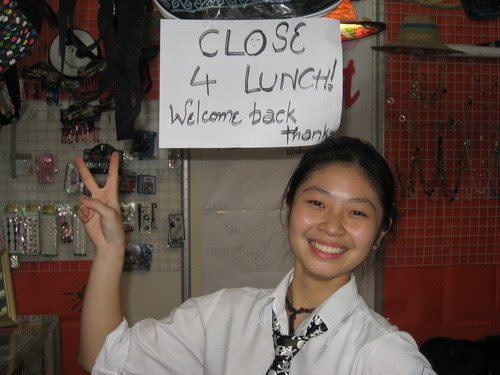 CLOSE
4 LUNCH!
Welcome back
thanks